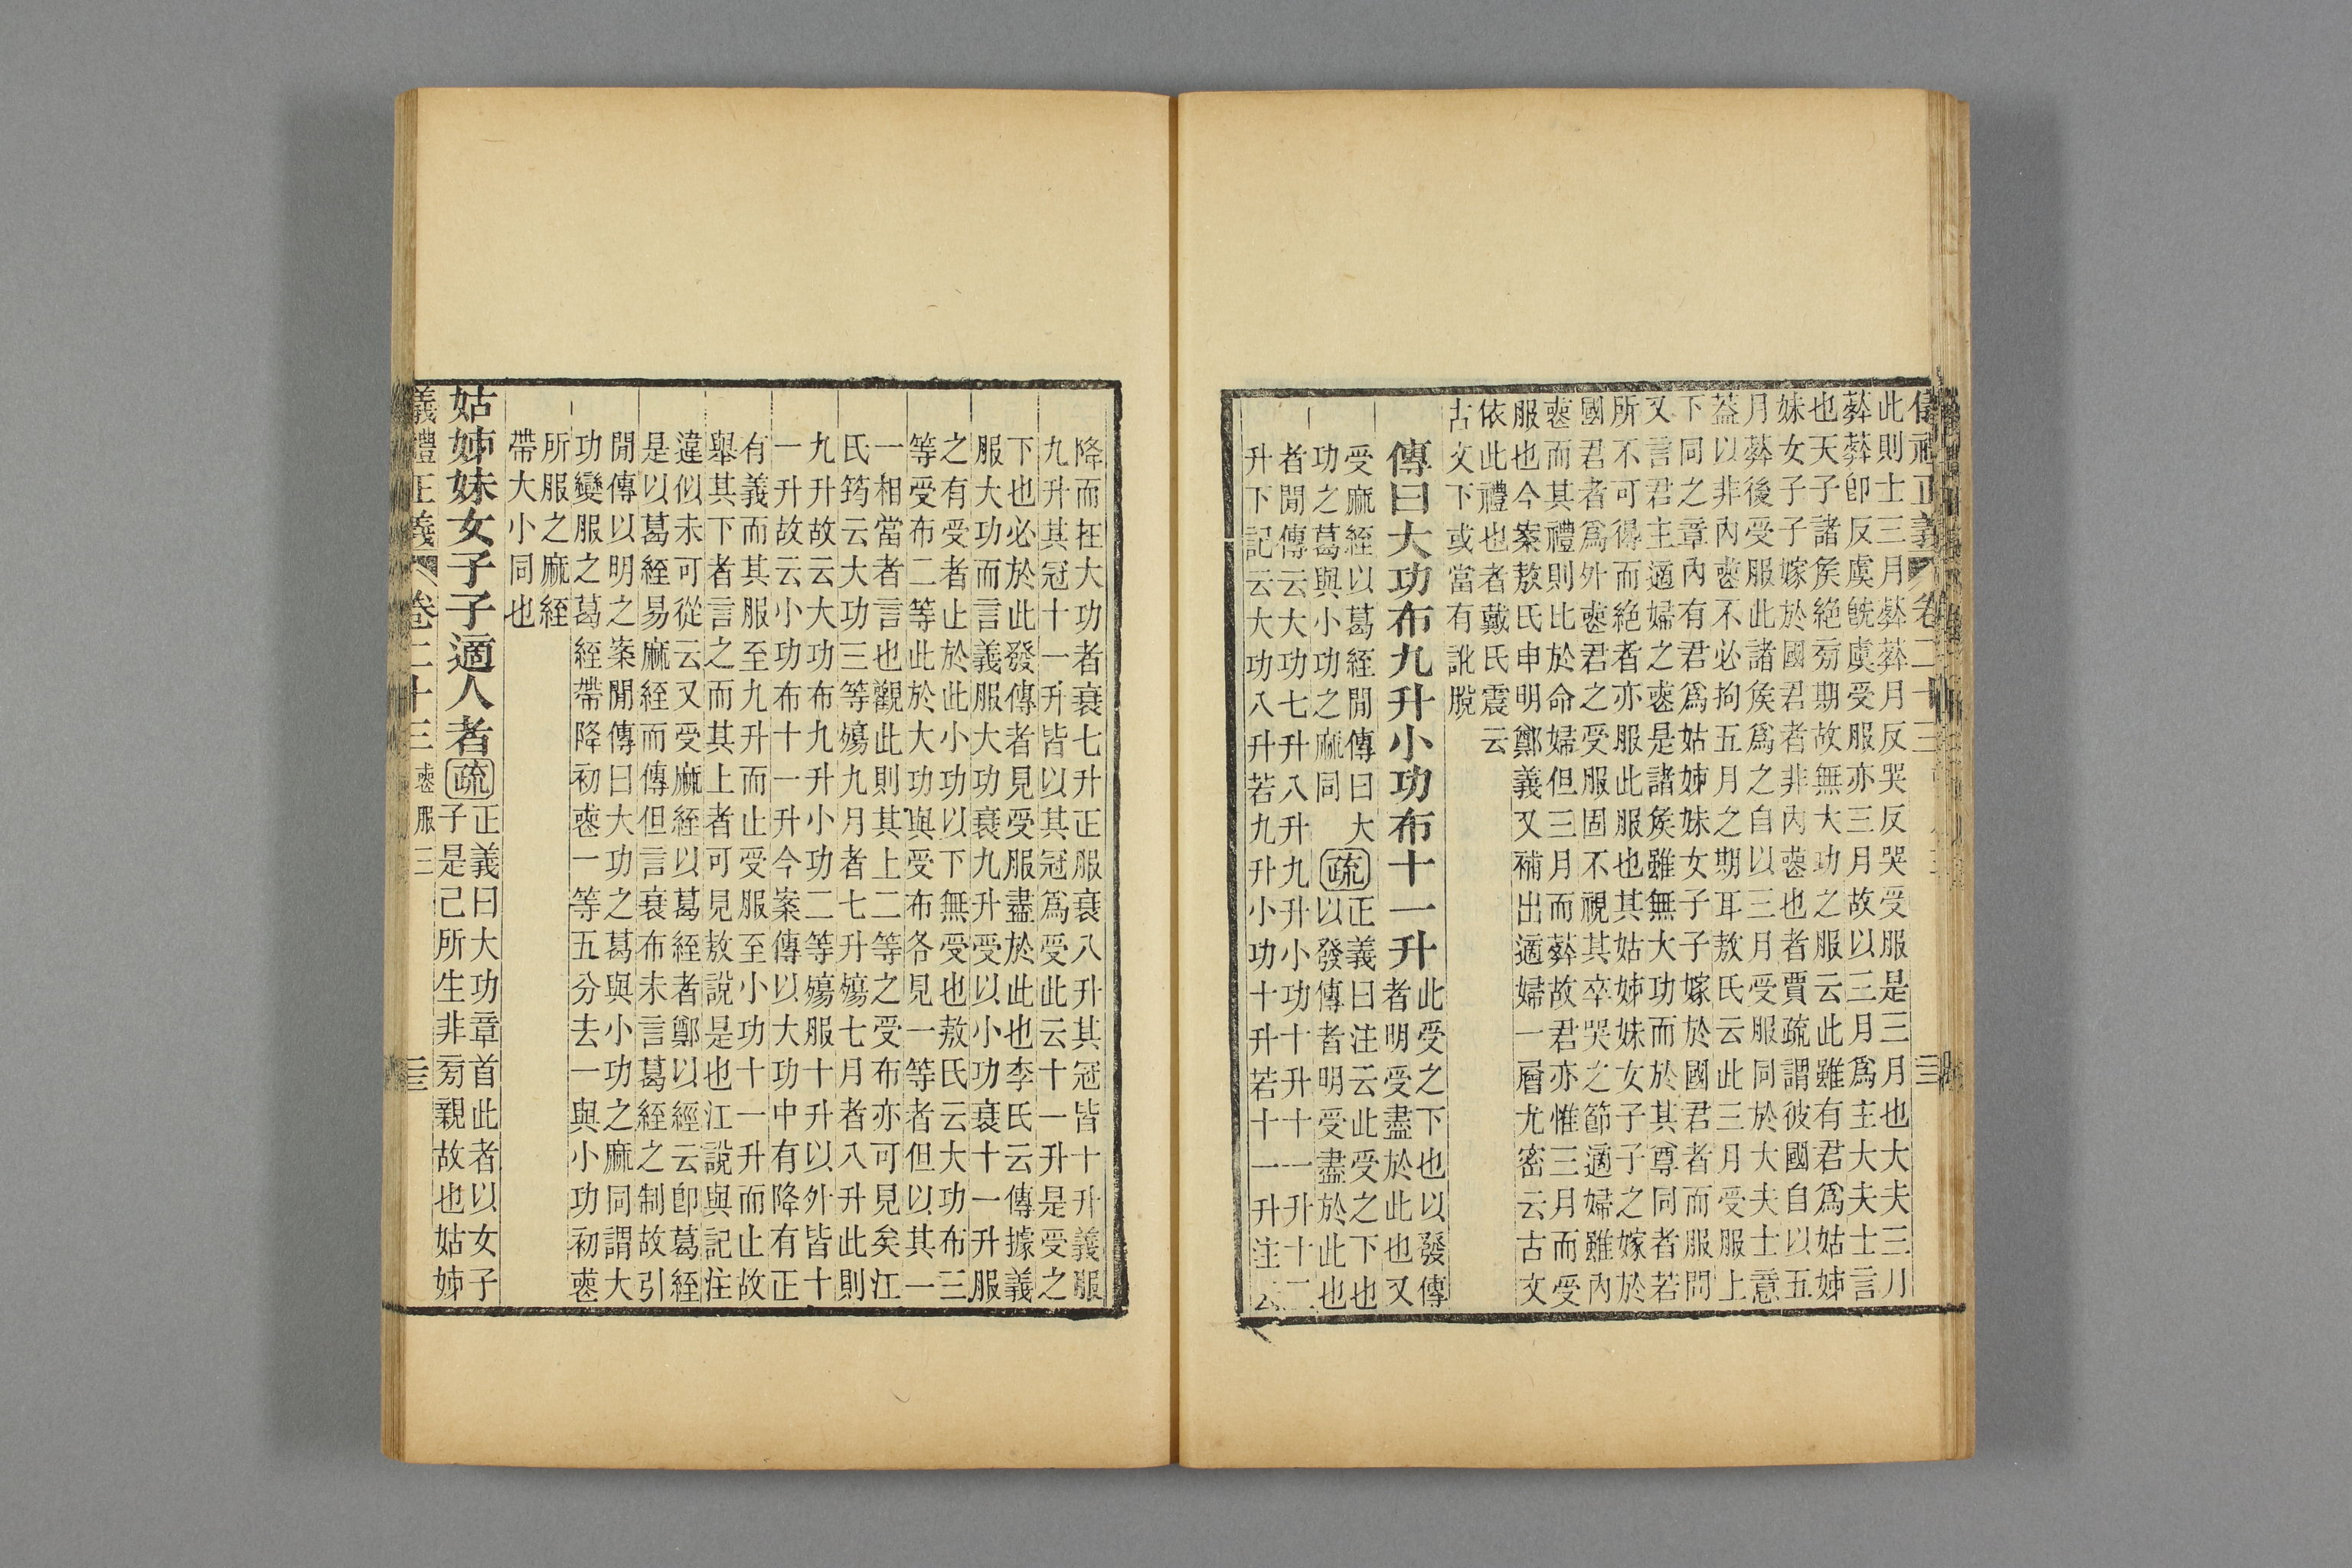 儀禮正義 卷二十三
此則士三月葬葬月反哭反哭受服是三月也大夫三月
葬葬卽反虞旣虞受服亦三月故以三月爲主大夫士言
也天子諸矦絶㫄期故無大功之服云此雖有君爲姑姊
妹女子子嫁於國君者非內䘮也者賈疏謂彼國自以五
月葬後受服此諸矦爲之自以三月受服同於大夫士意
葢以非內䘮不必拘五月之期耳敖氏云此三月受服上
下同之章內有君爲姑姊妹女子子嫁於國君者而服問
又言君主適婦之䘮是諸矦雖無大功而於其尊同者若
所不可得而絶者亦服此服也其姑姊妹女子子之嫁於
國君者爲外䘮君之受服固不視其卒哭之節適婦雖內
䘮而其禮則比於命婦但三月而葬故君亦惟三月而受
服也今案敖氏申明鄭義又補出適婦一層尤密云古文
依此禮也者戴氏震云
古文下或當有訛脫
傳曰大功布九升小功布十一升
此受之下也以發傳
者明受盡於此也又
受麻絰以葛絰閒傳曰大
功之葛與小功之麻同
疏
正義曰注云此受之下也
以發傳者明受盡於此也
者閒傳云大功七升八升九升小功十升十一升十二
升下記云大功八升若九升小功十升若十一升注云
降而在大功者衰七升正服衰八升其冠皆十升義服
九升其冠十一升皆以其冠爲受此云十一升是受之
下也必於此發傳者見受服盡於此也李氏云傳據義
服大功而言義服大功衰九升受以小功衰十一升服
之有受者止於此小功以下無受也敖氏云大功布三
等受布二等此於大功與受布各見一等者但以其一
一相當者言也觀此則其上二等之受布亦可見矣江
氏筠云大功三等殤九月者七升殤七月者八升此則
九升故云大功布九升小功二等殤服十升以外皆十
一升故云小功布十一升今案傳以大功中有降有正
有義而其服至九升而止受服至小功十一升而止故
舉其下者言之而其上者可見敖說是也江說與記注
違似未可從云又受麻絰以葛絰者鄭以經云卽葛絰
是以葛絰易麻絰而傳但言衰布未言葛絰之制故引
閒傳以明之案閒傳曰大功之葛與小功之麻同謂大
功變服之葛絰帶降初䘮一等五分去一與小功初䘮
所服之麻絰
帶大小同也
姑姊妹女子子適人者
疏
正義曰大功章首此者以女子
子是己所生非㫄親故也姑姊
儀禮正義 卷二十三 䘮服三